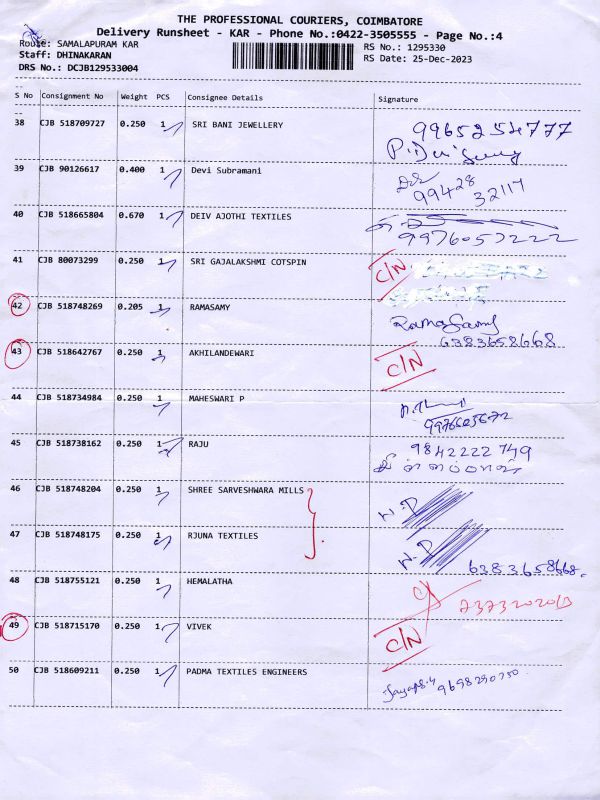 THE PROFESSIONAL COURIERS, COIMBATORE
Delivery Runsheet - KAR - Phone No.:0422-3505555 - Page No.:4
Route: SAMALAPURAM KAR
RS No.: 1295330
Staff: DHINAKARAN
RS Date: 25-Dec-2023
DRS No.: DCJB129533004
S No Consignment No Weight PCS Consignee Details Signature
38 CJB 518709727 0.250 1 SRI BANI JEWELLERY 9965254777
39 CJB 90126617 0.400 1 Devi Subramani 99428 32117
40 CJB 518665804 0.670 1 DEIV AJOTHI TEXTILES 9976057222
41 CJB 80073299 0.250 1 SRI GAJALAKSHMI COTSPIN C/N
42 CJB 518748269 0.205 1 RAMASAMY RamaSamy
6383658668
43 CJB 518642767 0.250 1 AKHILANDEWARI C/N
44 CJB 518734984 0.250 1 MAHESWARI P
45 CJB 518738162 0.250 1 RAJU 9842222749
46 CJB 518748204 0.250 1 SHREE SARVESHWARA MILLS N.P
47 CJB 518748175 0.250 1 RJUNA TEXTILES N.P
6383658668.
48 CJB 518755121 0.250 1 HEMALATHA
49 CJB 518715170 0.250 1 VIVEK C/N
50 CJB 518609211 0.250 1 PADMA TEXTILES ENGINEERS 9698290750